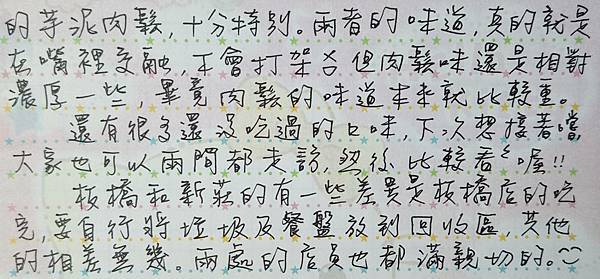 的芋泥肉鬆,十分特別。兩者的味道,真的就是
在嘴裡交融,不會打架ㄟ但肉鬆味還是相對
濃厚一些,畢竟肉鬆的味道本來就比較重。
還有很多還沒吃過的口味,下次想接著嚐,
大家也可以兩間都走訪,然後比較看ㄟ喔!!
板橋和新莊的有一些差異是板橋店的吃
完,要自行將垃圾及餐盤放到回收區,其他
的相差無幾。兩處的店員也都滿親切的。